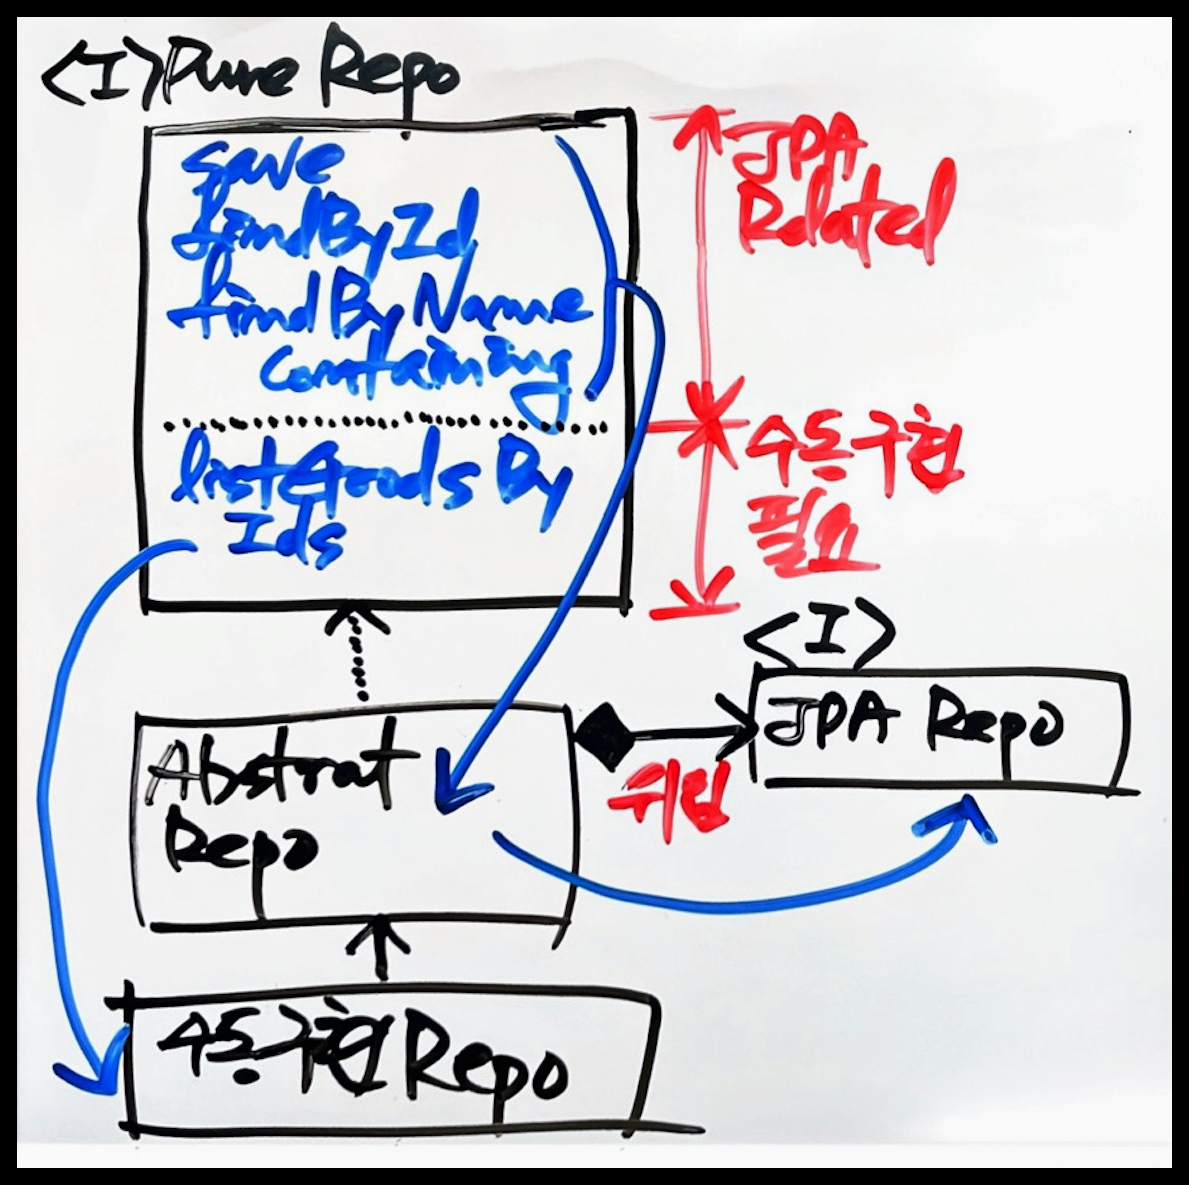 <I>Pure Repo
save
findById
findByName
Containing
listGoods By
Ids
JPA
Related
수동구현
필요
<I>
JPA Repo
위임
Abstrat
Repo
수동구현 Repo